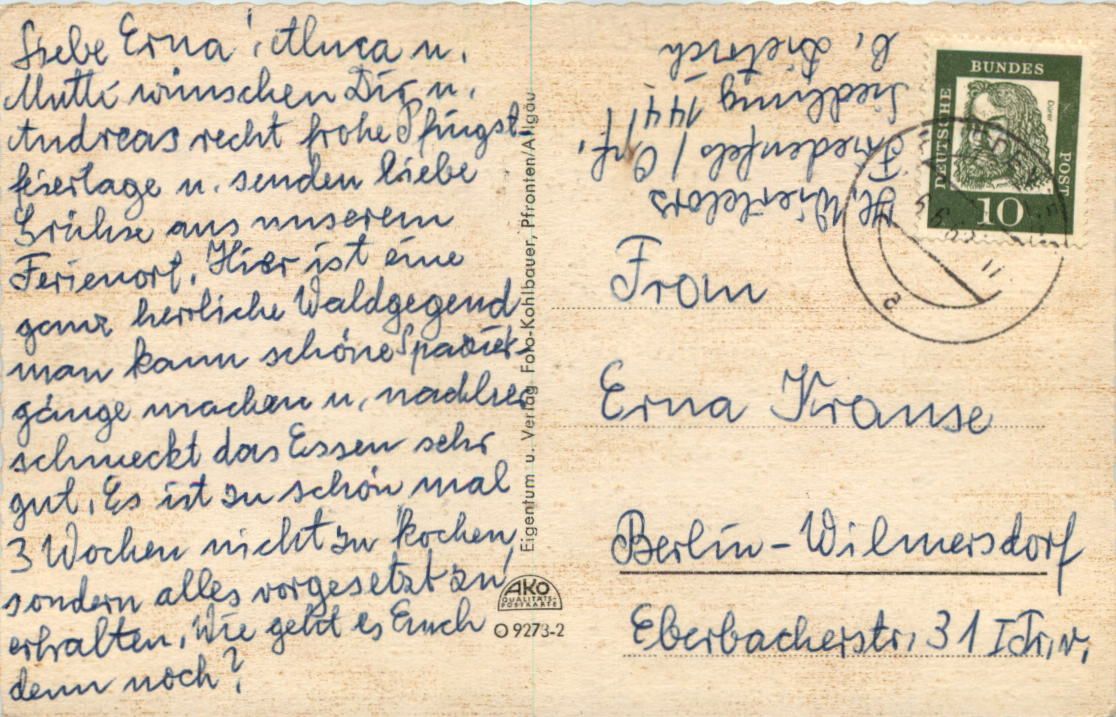 Liebe Erna! Mutti u.
Mutti wünschen Dir u.
Andreas recht frohe Pfingst-
feiertage u. senden liebe
Grühse aus unserem
Ferienort. Hier ist eine
ganz herrliche Waldgegend
man kann schöne Spazier-
gänge machen u. nachher
schmeckt das Essen sehr
gut. Es ist zu schön mal
3 Wochen nicht zu kochen,
sondern alles vorgesetzt zu
erhalten. Wie geht es Euch
denn noch?
Eigentum u. Verlag Foto-Kohlbauer, Pfronten/Allgäu
AKO
QUALITÄTS-
POSTKARTE
O 9273-2
Friedenfels / Opf.
Siedlung 144 1/7
b. Dietrich
DEUTSCHE
BUNDES
POST
Dürer
10
Frau
Erna Krause
Berlin-Wilmersdorf
Eberbacherstr. 31 I Tr. v.